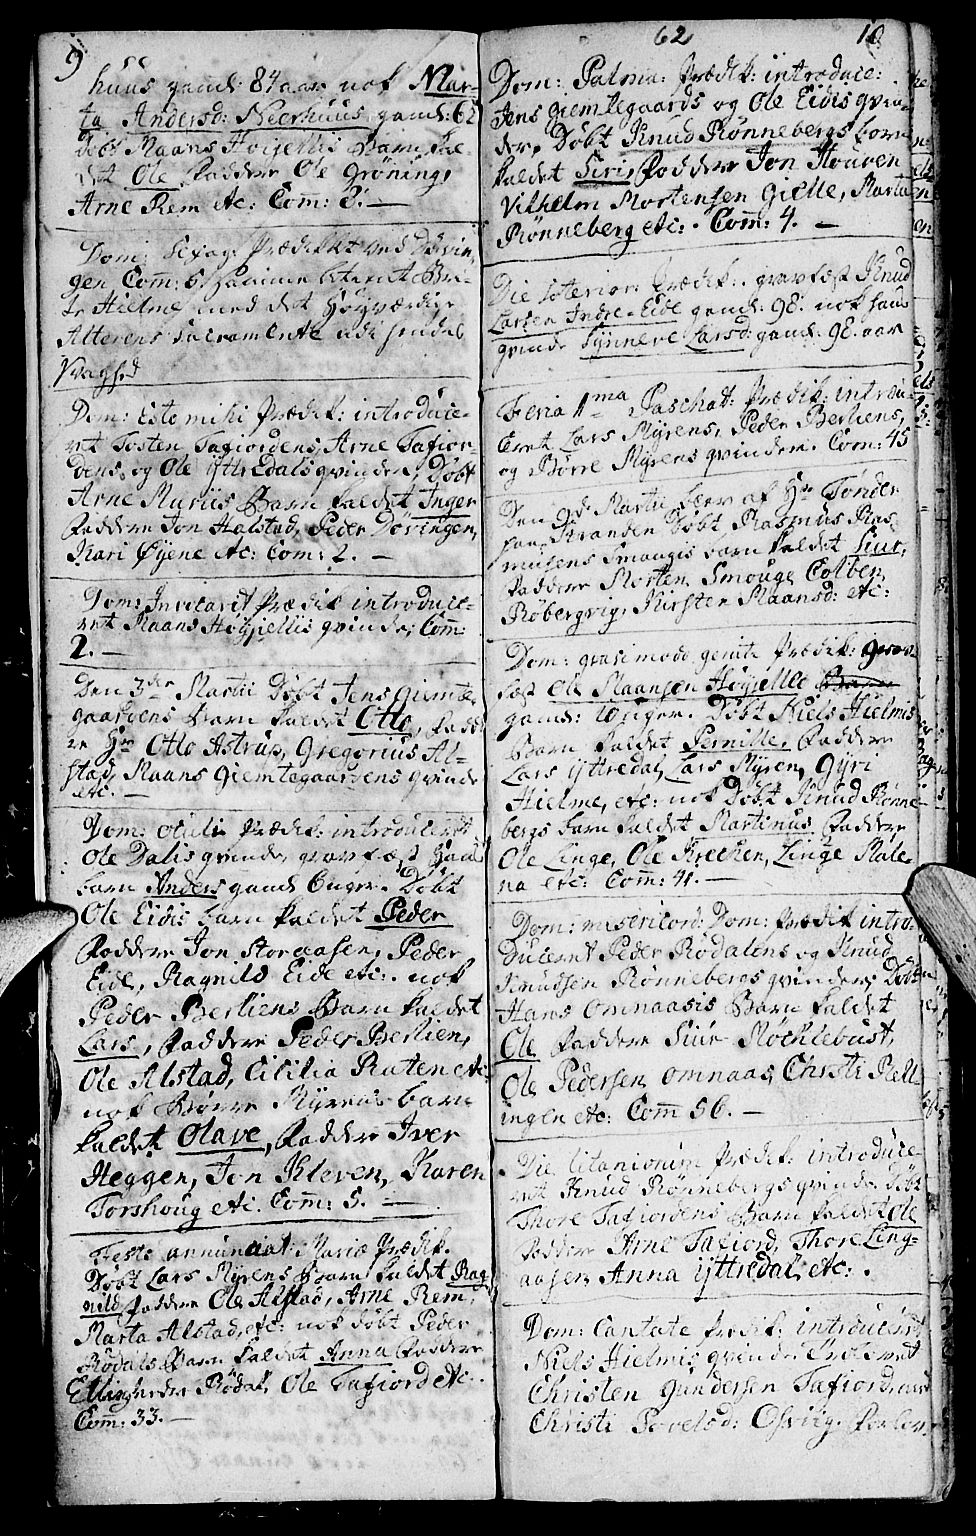 9
huus gamel: 84 aar nok Mar-
ta Andersd: Neerhuus, gamel: 62
Døbt Maans Høyjellis Barn kal-
det Ole, Faddere Ole Grøning,
Arne Rem etc: Com: 3. —
Dom: Sexag: Prædikket ved Døving
gen Com: 6, samme betient Bri-
te Hielme med det Høyværdige
Alterens Sacramente udi hendes
Svaghed
Dom: Esto mihi Prædik: introduce-
ret Tosten Tafiordens, Arne Tafior-
dens, og Ole Yttredals qvinder, Døbt
Arne Muriis Barn kaldet Inger
Faddere Jon Halstad, Peder Døvingen,
Kari Øyene etc: Com: 2. —
Dom: Invocavit Prædik: introduce-
ret Maans Høyjellis qvinde, Com:
2. —
Den 3die Martii Døbt Jens Giemte-
gaardens Barn kaldet Otto, Fadde
re Hr Otto Astrup, Gregorius Al-
stad, Maans Giemtegaardens qvinde
etc. —
Dom: Oculi Prædik: introduceret
Ole Dalis qvinde, gravfæst Hans
barn Anders gamel 6 uger. Døbt
Ole Eidis barn kaldet Peder
Faddere Jon Storaasen, Peder
Eide, Ragnild Eide etc: nok
Peder Berliens Barn kaldet
Lars, Faddere Peder Berlien,
Ole Alstad, Cilitia Ruten etc
nok Børre Myrens barn
kaldet Olave, Faddere Iver
Heggen, Jon Kleven, Karen
Torshoug etc. Com: 5. —
Festo annunciat: Mariæ Prædik.
Døbt Lars Myrens Barn kaldet Rag
nild, Faddere Ole Alstad, Arne Rem,
Marta Alstad, etc: nok døbt Peder
Rødals Barn kaldet Anna Faddere
Elling Rødal, Ole Tafiord etc.
Com: 33. —
62
10
Dom: Palma: Prædik: introduce:
Jens Giemtegaards og Ole Eidis qvin-
der. Døbt Knud Rønnebergs barn
kaldet Siri, Faddere Jon Houven
Vilhelm Mortensen Gielle, Marta
Rønneberg etc: Com: 4. —
Die Soterior: Prædik: gravfæst Knud
Larsen Indre-Eide gamel: 98. nok hans
qvinde Synneve Larsd: gamel: 98. aar
Feria 1ma Paschat: Prædik: introdu-
ceret Lars Myrens, Peder Berliens,
og Børre Myrens qvinder. Com: 45
Den 9de Martii blev af Hr Tønder
paa Stranden Døbt Rasmus Ras-
musens Smaagis barn kaldet Siur,
Faddere Morten Smouge, Colben
Røbergvig, Kirsten Maansd: etc:
Dom: qvasimodo geniti Prædik: grav-
fæst Ole Maansen Høyjelle
gamel: 10 uger. Døbt Niels Hielmis
Barn kaldet Pernille, Faddere
Lars Yttredal, Lars Myren, Gyri
Hielme, etc: nok Døbt Knud Rønne-
bergs barn kaldet Martinus Faddere
Ole Linge, Ole Krechen, Linge Male-
na etc: Com: 41. —
Dom: misericord: Dom: Prædik intro-
duceret Peder Rødalens og Knud
Knudsen Rønnebergs qvinder, Døbt
Hans Omnaasis Barn kaldet
Ole Faddere Siur Møchlebust,
Ole Pedersen Omnaas, Christi Rell-
ingen etc: Com 56. —
Die litanionim Prædik: introduce-
ret Knud Rønnebergs qvinde Døbt
Thore Tafiordens Barn kaldet Ole
Faddere Arne Tafiord, Thore Ling-
aasen, Anna Yttredal, etc: .
Dom: Cantate Prædik: introduceret
Niels Hielmis qvinde Trolovet
Christen Gundersen Tafiord, med
Christi Povelsd: Osvilg,